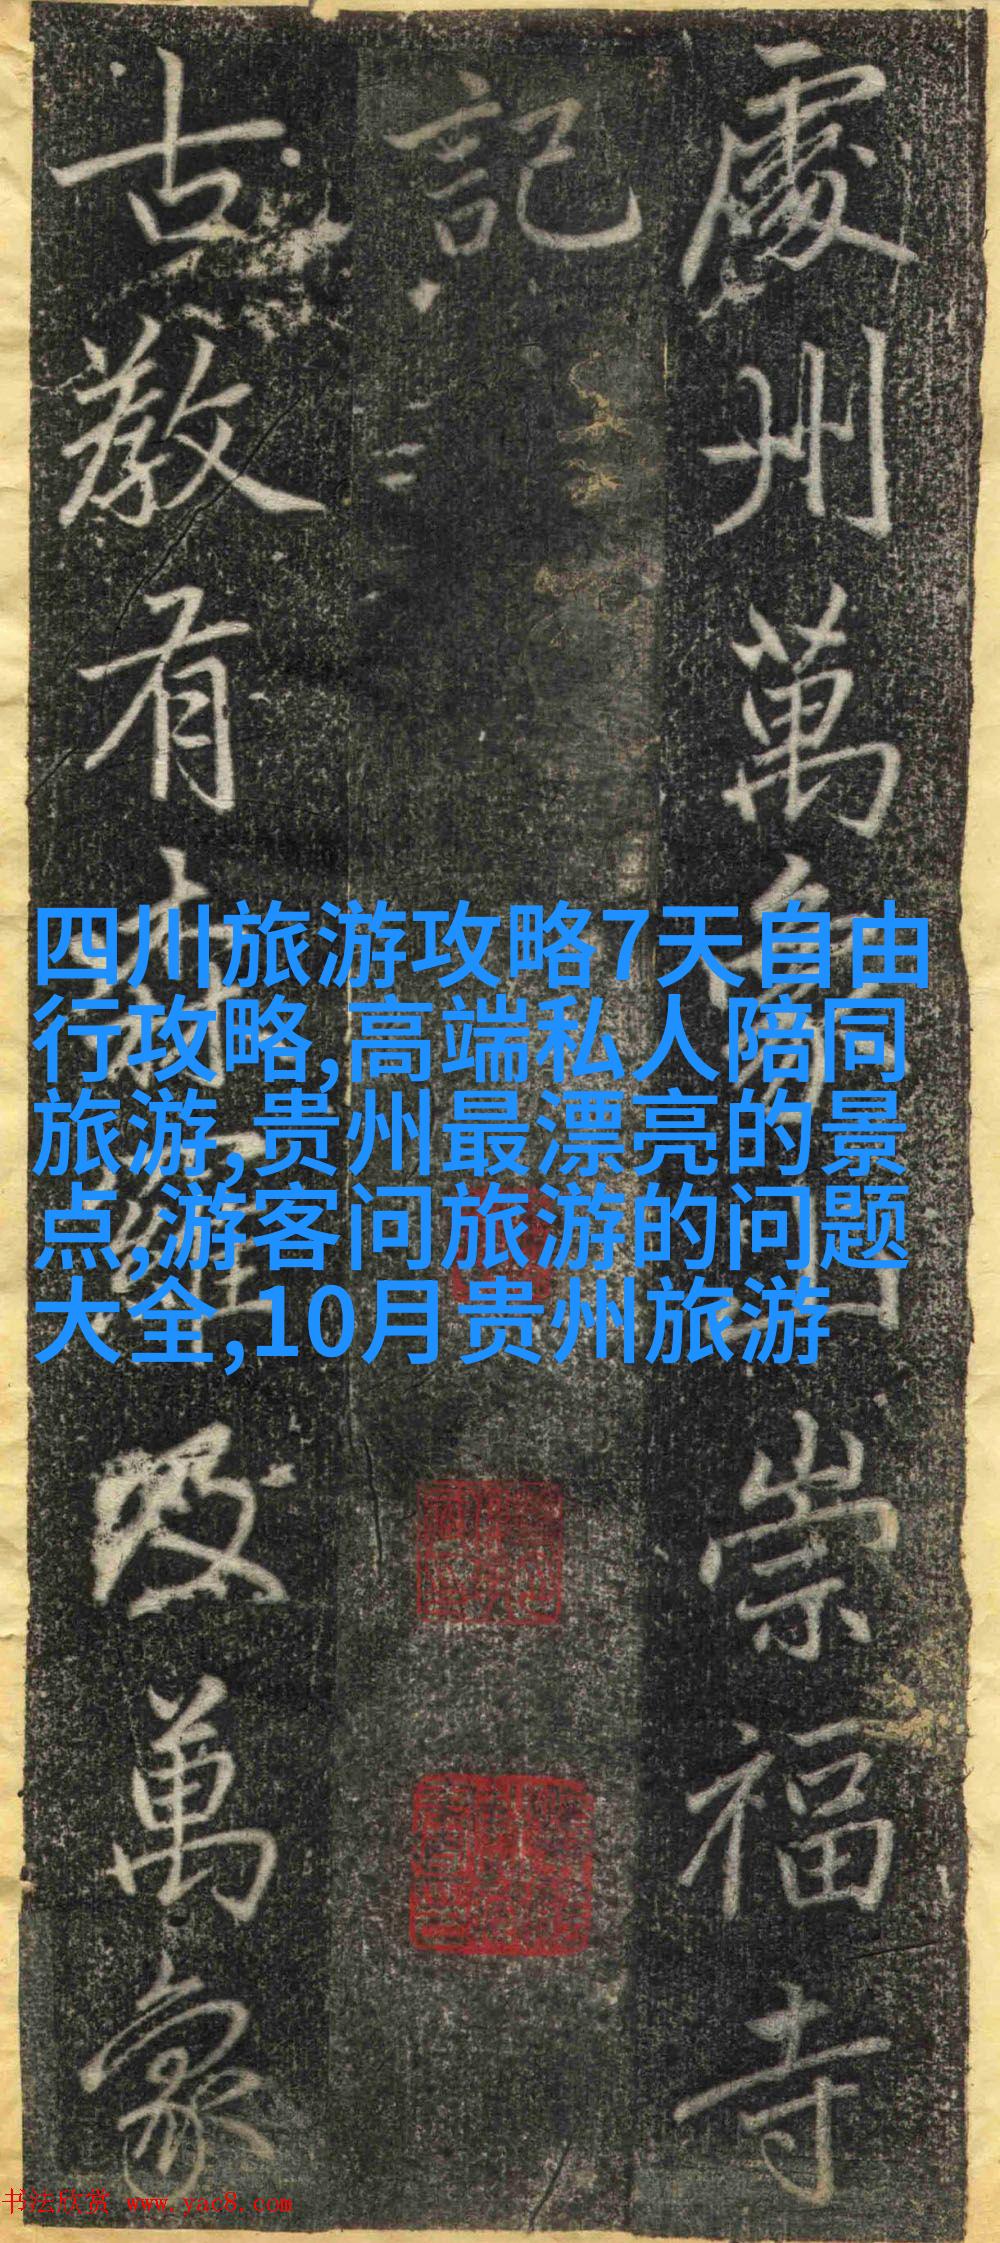 處州萬象山崇福寺
記
古教有森羅及萬象
四川旅游攻略7天自由
行攻略,高端私人陪同
旅游,贵州最漂亮的景
点,游客问旅游的问题
大全,10月贵州旅游
书法欣赏 www.yac8.com